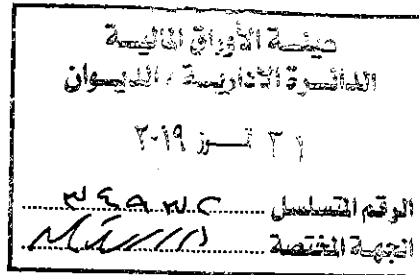 هيئة الأوراق المالية
الدائرة الادارية / الديوان
تموز ٢٠١٩
الرقم المتسلسل ٣٤٩٣٢
الجهة المختصة